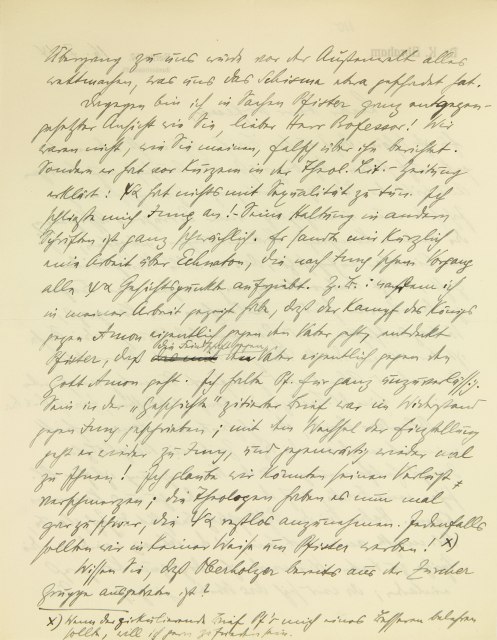 Übergang zu uns würde vor der Außenwelt alles
wettmachen, was uns das Schisma etwa geschadet hat.
Dagegen bin ich in Sachen Pfister ganz entgegen-
gesetzter Ansicht wie Sie, lieber Herr Professor! Wir
waren nicht, wie Sie meinen, falsch über ihn berichtet.
Sondern er hat vor kurzem in der Theol. Lit.-Zeitung
erklärt: ΨΑ hat nichts mit Sexualität zu tun. Ich
schließe mich Jung an! - Seine Haltung in andern
Schriften ist ganz schwächlich. Er sandte mir kürzlich
eine Arbeit über Echnaton, die nach Jung'schem Vorgang
alle ΨΑ Gesichtspunkte aufgiebt. Z. B.: nachdem ich
in meiner Arbeit gezeigt habe, daß der Kampf des Königs
gegen Amon eigentlich gegen den Vater geht, entdeckt
Pfister, daß die Feindseligkeit gegen den Vater eigentlich gegen den
Gott Amon geht. Ich halte Pf. für ganz unzuverlässig.
Sein in der „Geschichte" zitierter Brief war im Widerstand
gegen Jung geschrieben; mit dem Wechsel der Einstellung
geht er wieder zu Jung, und gegenwärtig wieder mal
zu Ihnen! Ich glaube wir könnten seinen Verlust
verschmerzen; die Theologen haben es nun mal
gar zu schwer, die ΨΑ restlos anzunehmen. Jedenfalls
sollten wir in keiner Weise um Pfister werben! x)
Wissen Sie, daß Oberholzer bereits aus der Zürcher
Gruppe ausgetreten ist?
x) Wenn der zirkulierende Brief Pf's mich eines Besseren belehren
sollte, will ich gern zufrieden sein.